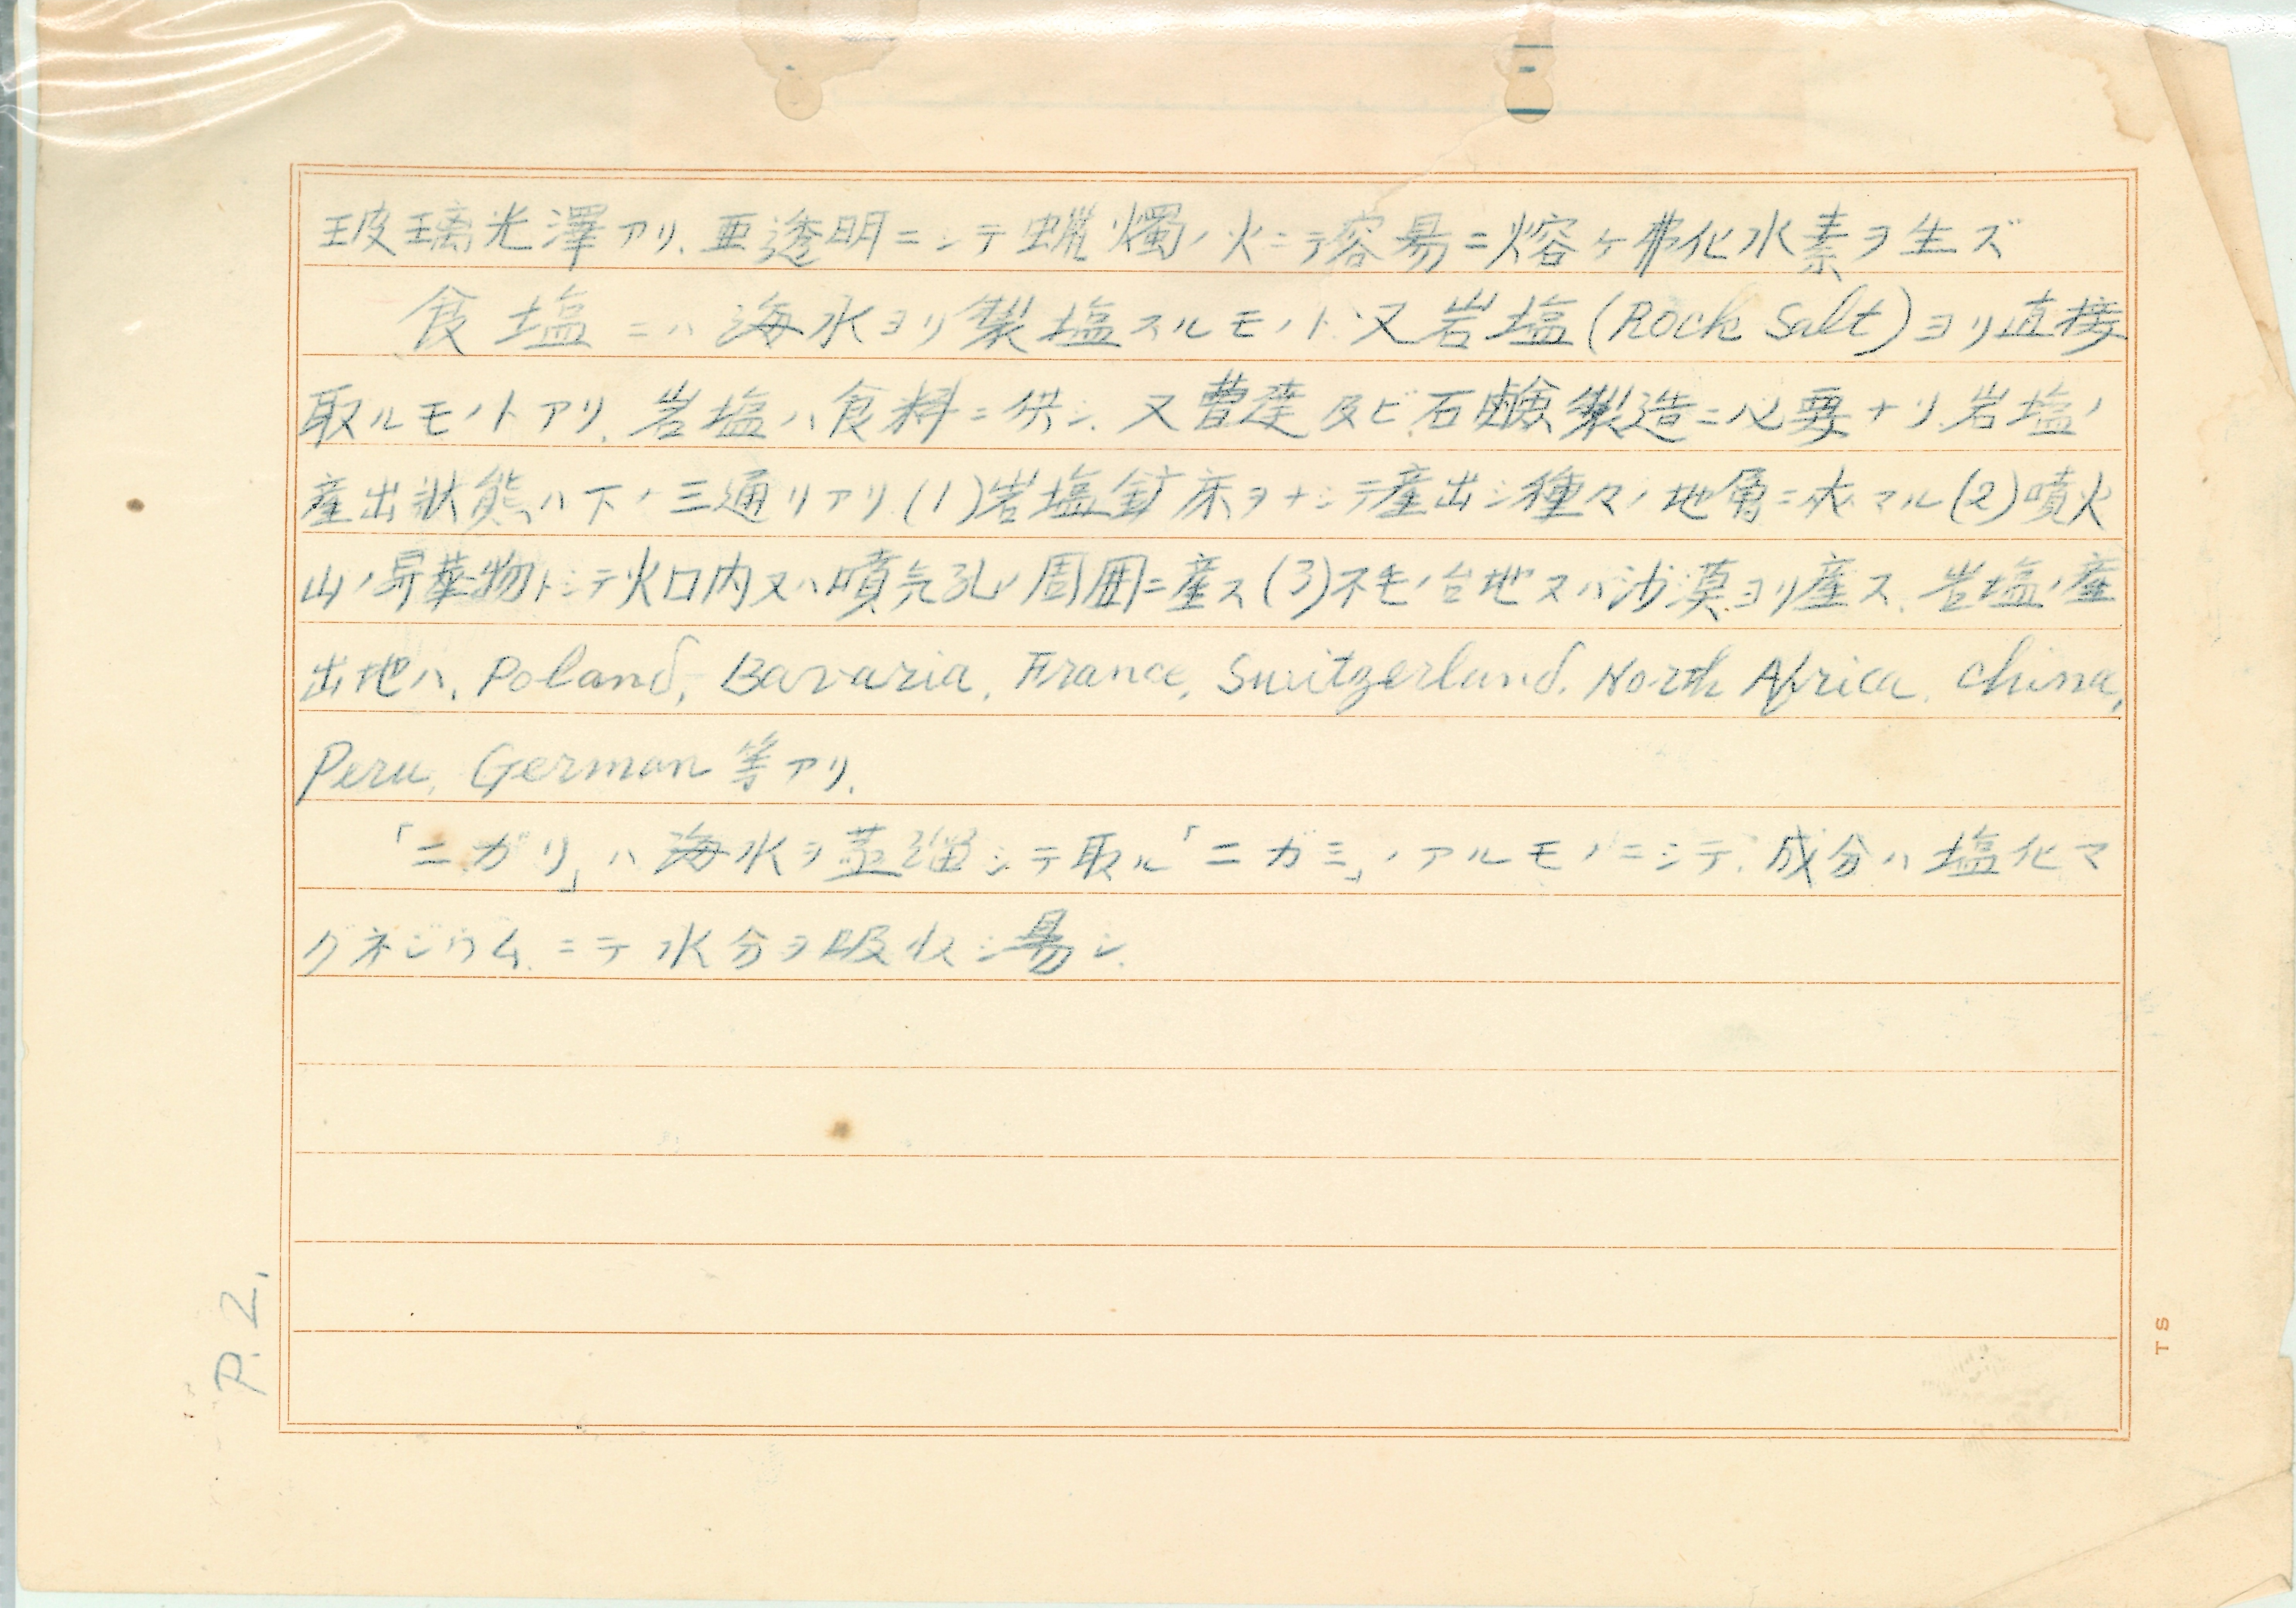 玻璃光澤アリ、亜透明ニシテ蝋燭ノ火ニテ容易ニ熔ケ弗化水素ヲ生ズ
食塩ニハ海水ヨリ製塩スルモノト又岩塩(Rock Salt)ヨリ直接
取ルモノトアリ、岩塩ハ食料ニ供シ、又曹達及ビ石鹸製造ニ必要ナリ、岩塩ノ
産出状態ハ下ノ三通リアリ(1)岩塩鉱床ヲナシテ産出シ種々ノ地層ニ夾マル(2)噴火
山ノ昇華物トシテ火口内又ハ噴気孔ノ周囲ニ産ス(3)不毛ノ台地又ハ沙漠ヨリ産ス、岩塩ノ産
出地ハ、Poland, Bavaria, France, Switzerland, North Africa, China,
Peru, German 等アリ、
「ニガリ」ハ海水ヲ蒸溜シテ取ル「ニガミ」ノアルモノニシテ、成分ハ塩化マ
グネジウムニテ水分ヲ吸収シ易シ、
P.2.
TS